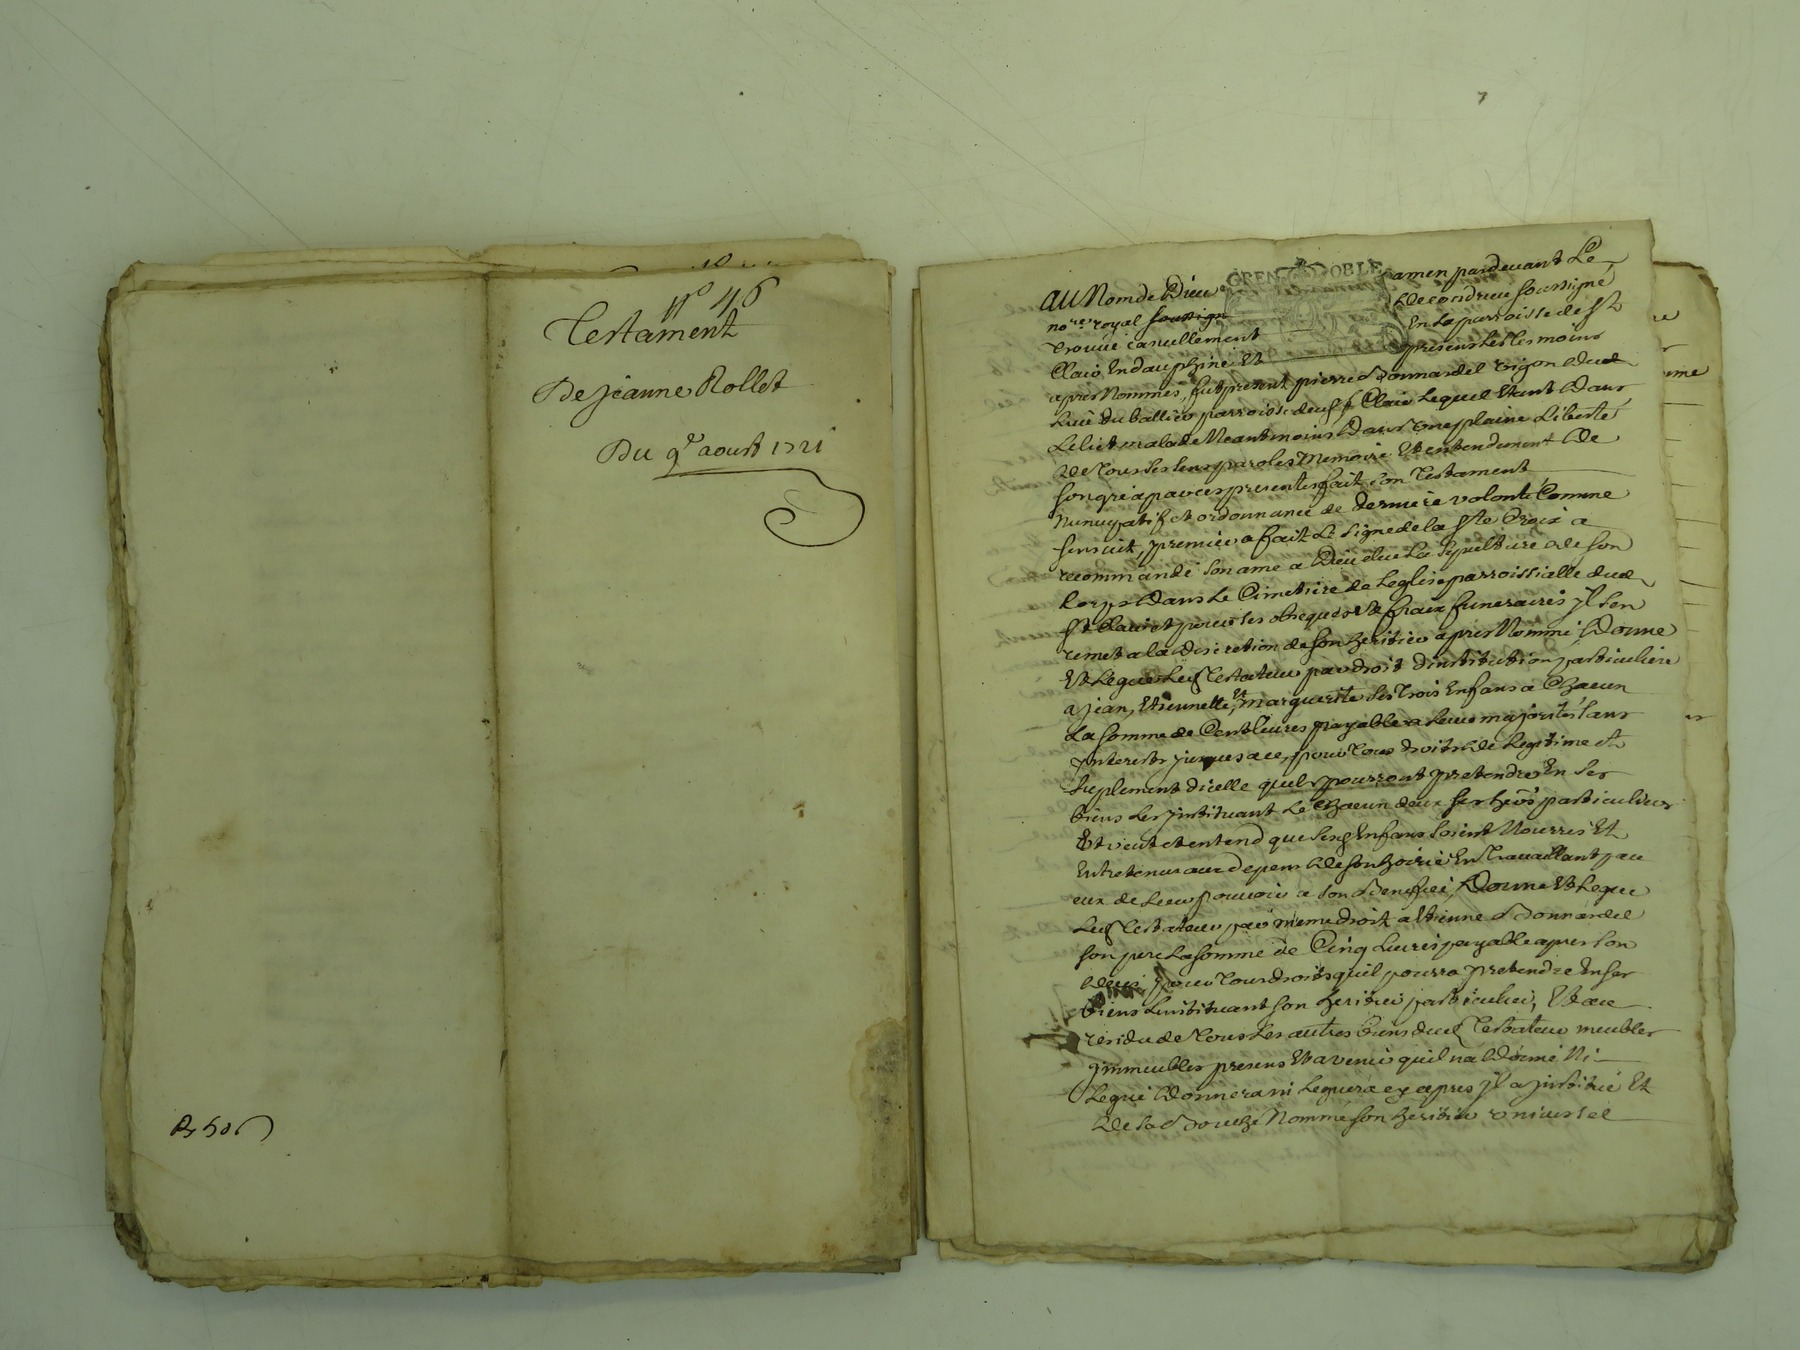 n° 46
Testament
De jeanne Rollet
Du 9e aoust 1721
GRENOBLE
au Nom de Dieu amen pardevant Le
nore royal soussign de condrieu soussigné
trouvé casuellement En la parroisse de st
Clair En dauphiné Et presens Les tesmoins
apres Nommés, fut present pierre donnardel vigon dud
Lieu du ballieu parroisse dud st Clair Lequel Etant dans
Le lict malade Neantmoins dans une plaine Liberté
de tous ses sens parolles Memoire Et entendement de
son gré a par ces presentes fait son testament
nuncupatif et ordonnance de derniere volonté Comme
sensuit, premier a fait Le signe de la ste Croix a
recommandé son ame a Dieu elue La sepulture de son
Corps dans Le Cimetiere de Leglise parroissialle dud
st Clair et pour ses obseques Et fraix funeraires jl sen
remet a la discretion de son heritier apres Nommé, Donne
Et Legue Led testateur par droit dinstitution particuliere
a jean, Etiennette, Et marguerite ses trois Enfans a Chacun
La somme de Cent livres payable a Leur majorité sans
jnterests jusques a ce, pour tous droits de Legitime et
suplement dicelle quils pourront pretendre En ses
biens Les jnstituant Le Chacun deux ses hers particuliers
Et veut et entend que sesd Enfans soient Nourris Et
Entretenus aux depens de son hoirie En travaillant par
eux de Leur pouvoir a son benefice, Donne Et Legue
Led testateur par meme droit a Etienne donnardel
son pere La somme de Cinq Livres payable apres son
deces, pour tous droits quil pourra pretendre En ses
biens Linstituant son heritier particulier, Et au
residu de tous Les autres biens dud testateur meubles
jmmeubles presens Et avenir quil na donné Ni
Legué donnera ni Leguera cy apres jl a jnstitué Et
de sa bouche Nommé son heritier universel